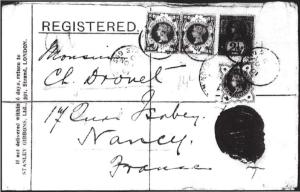 REGISTERED.
Monsieur
Ch. Drouet
17 Quai Isabey
Nancy
France
If not delivered within
days, return to
STANLEY GIBBONS Ltd., 391, Strand, LONDON.